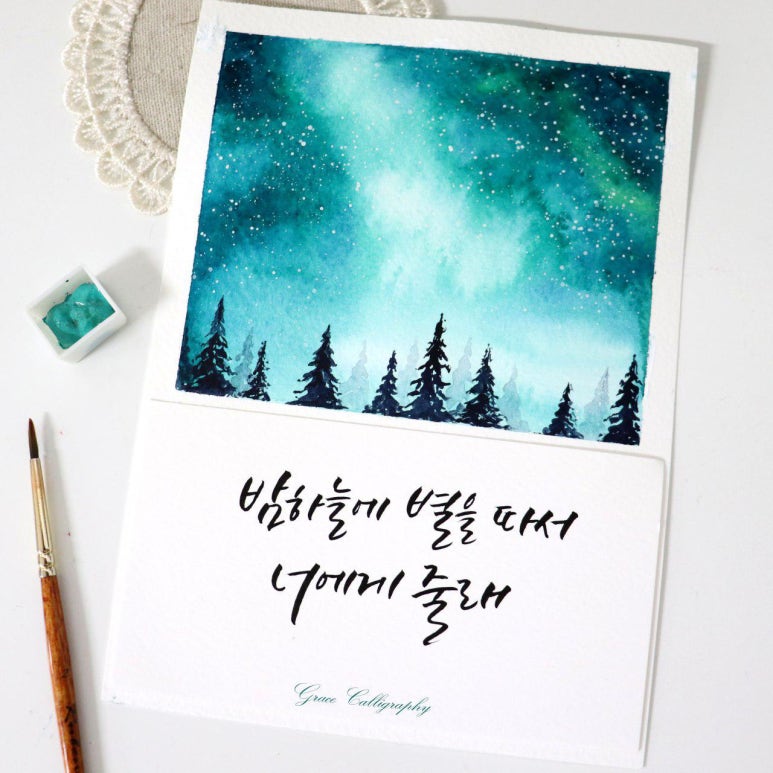 밤하늘에 별을 따서
너에게 줄래
Grace Calligraphy